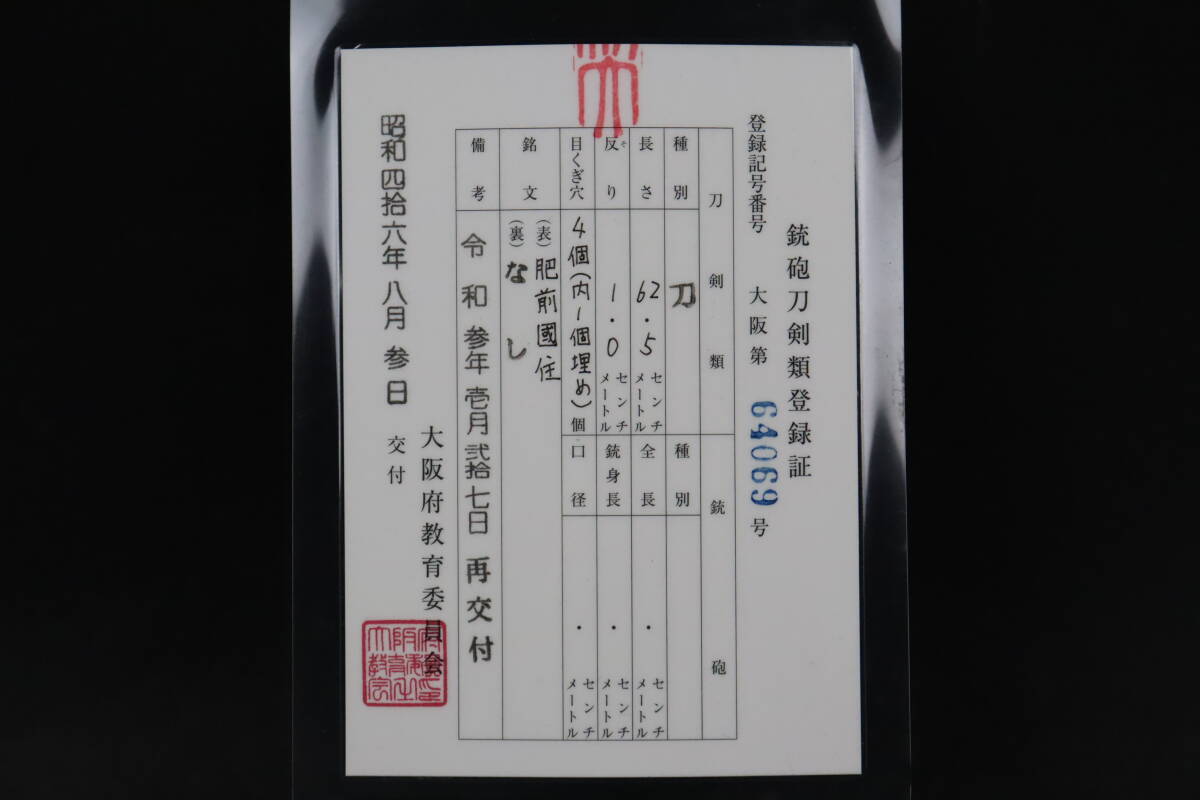 銃砲刀剣類登録証
登録記号番号 大阪第 64069 号
刀剣類
銃砲
種別 刀
種別
長さ 62.5 センチメートル
全長 ・ センチメートル
反り そ 1.0 センチメートル
銃身長 ・ センチメートル
目くぎ穴 4個(内1個埋め) 個
口径 ・ センチメートル
銘文 (表) 肥前國住
(裏) なし
備考 令和参年壱月弐拾七日再交付
大阪府教育委員会
昭和四拾六年八月参日 交付